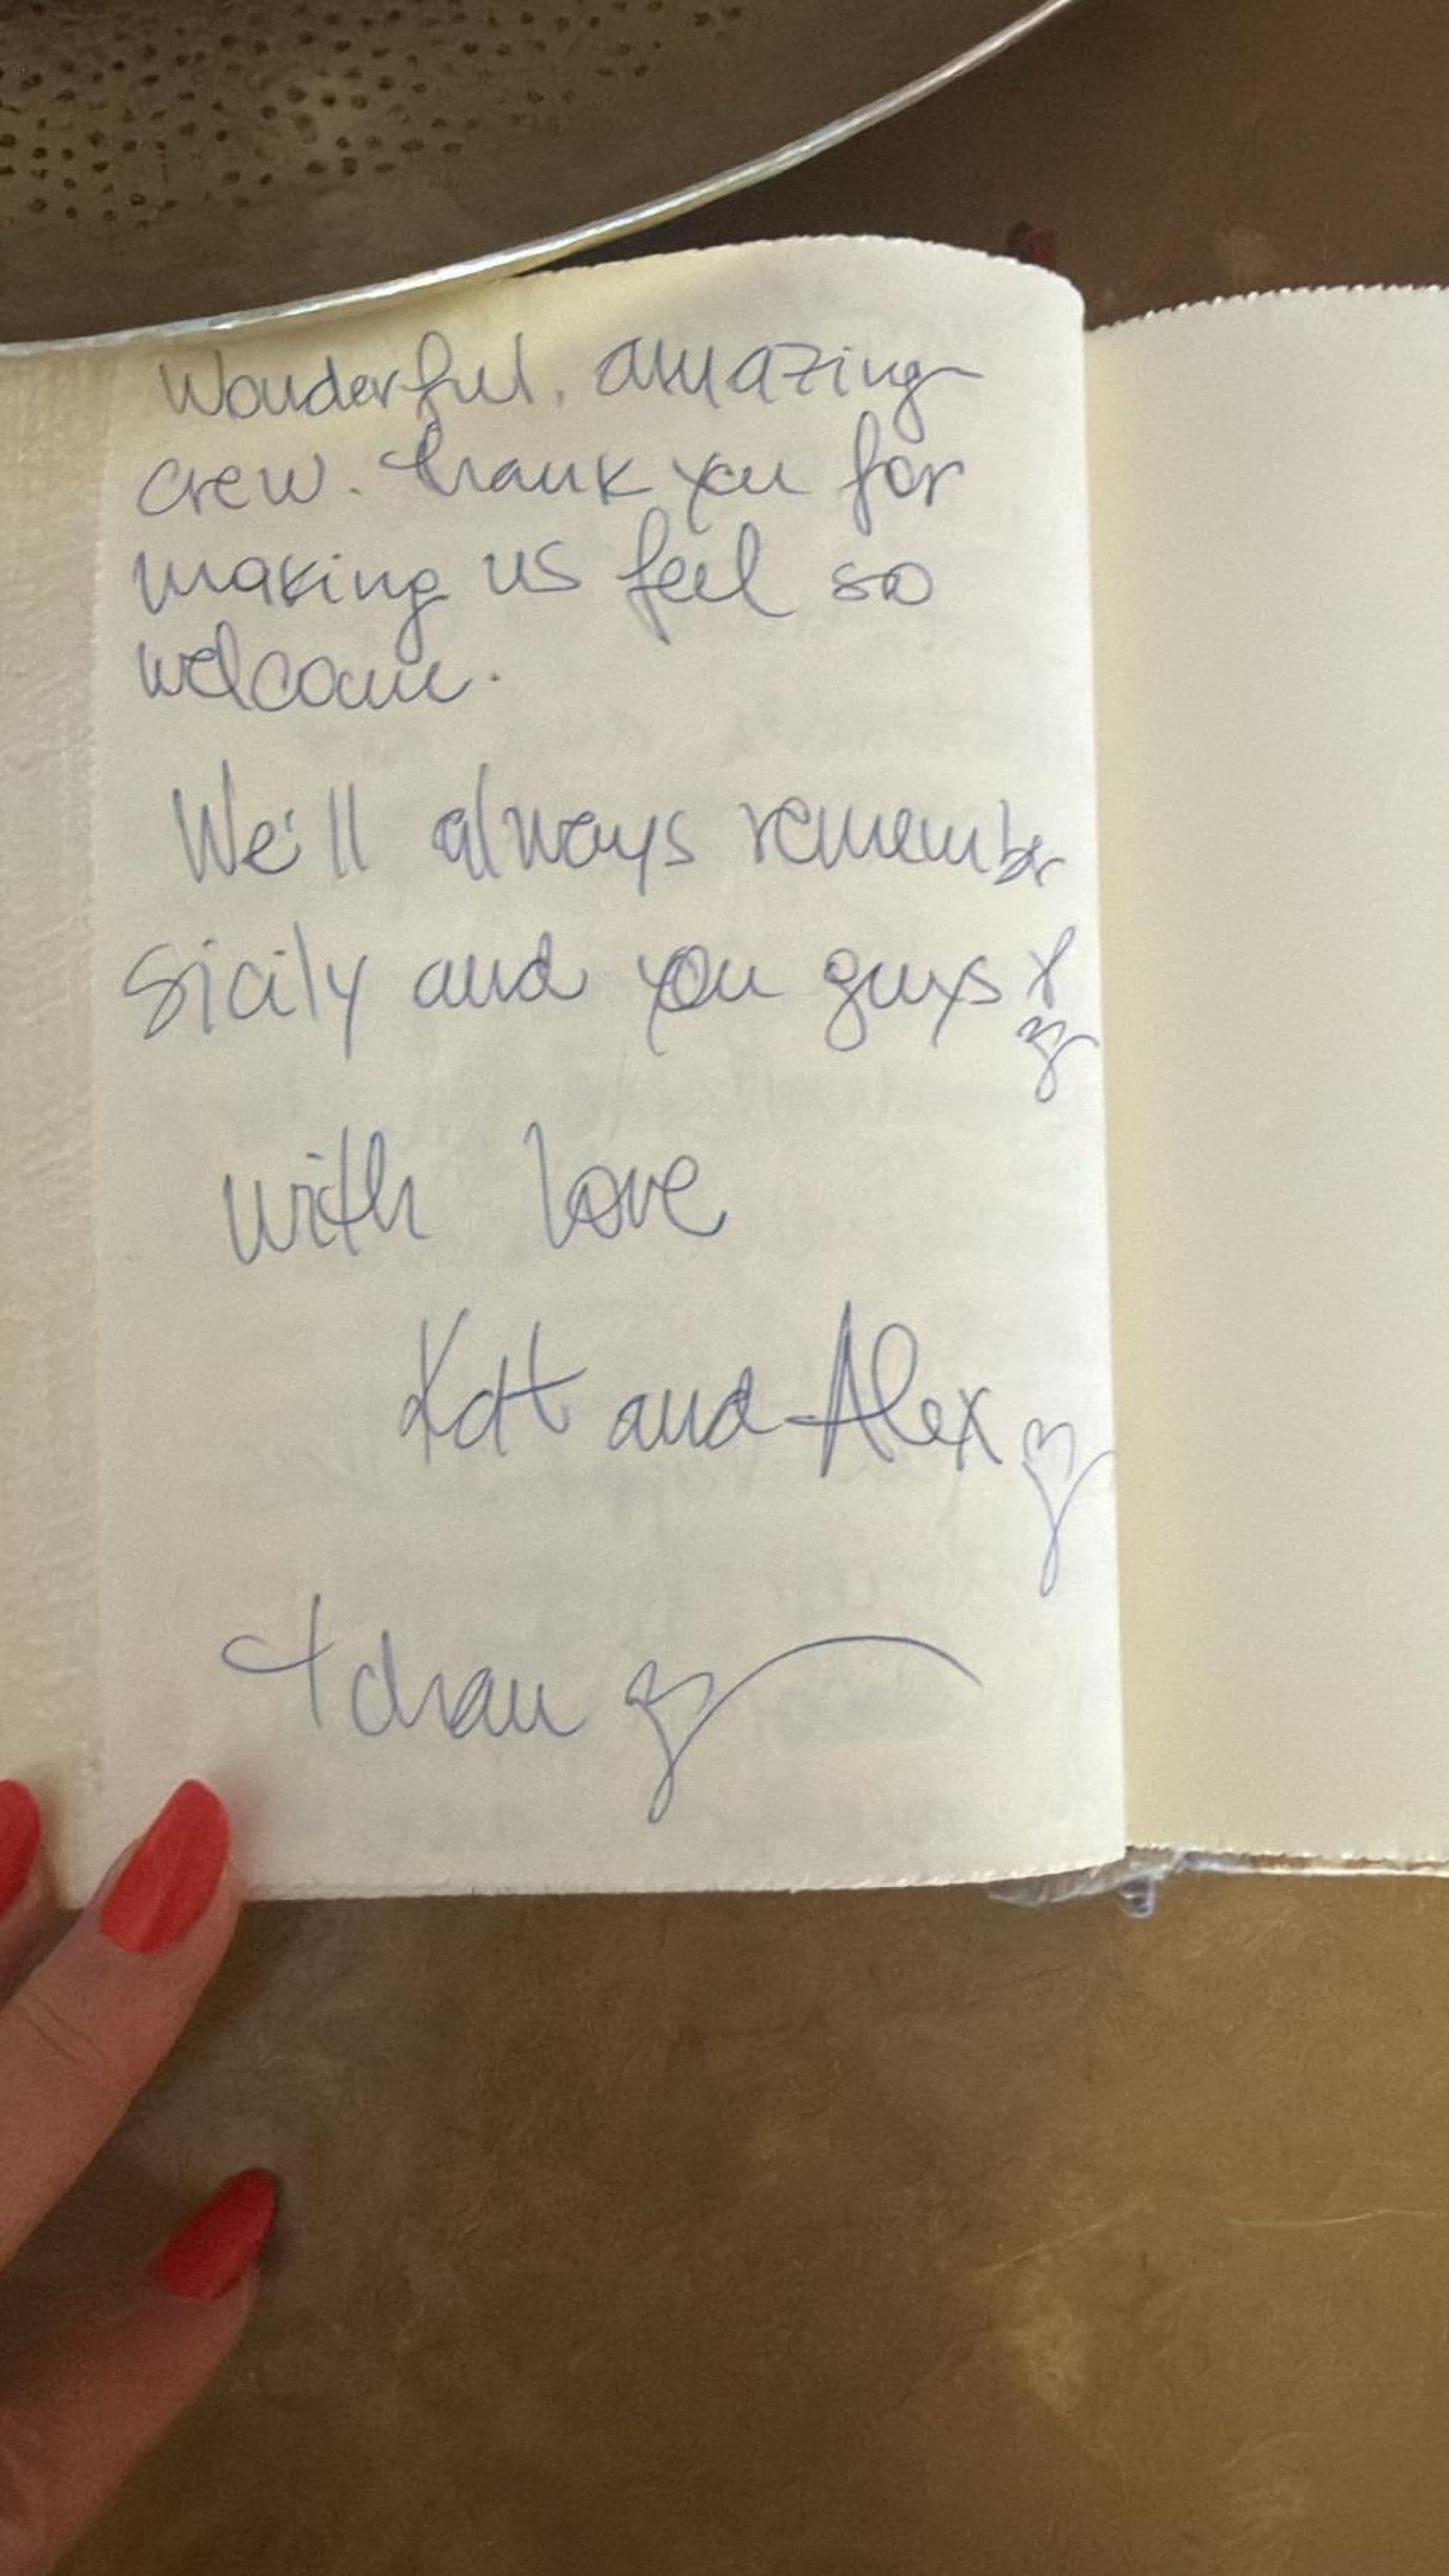 Wonderful, amazing
crew. thank you for
making us feel so
welcome.
We'll always remember
Sicily and you guys!
with love
Kat and Alex
tchau